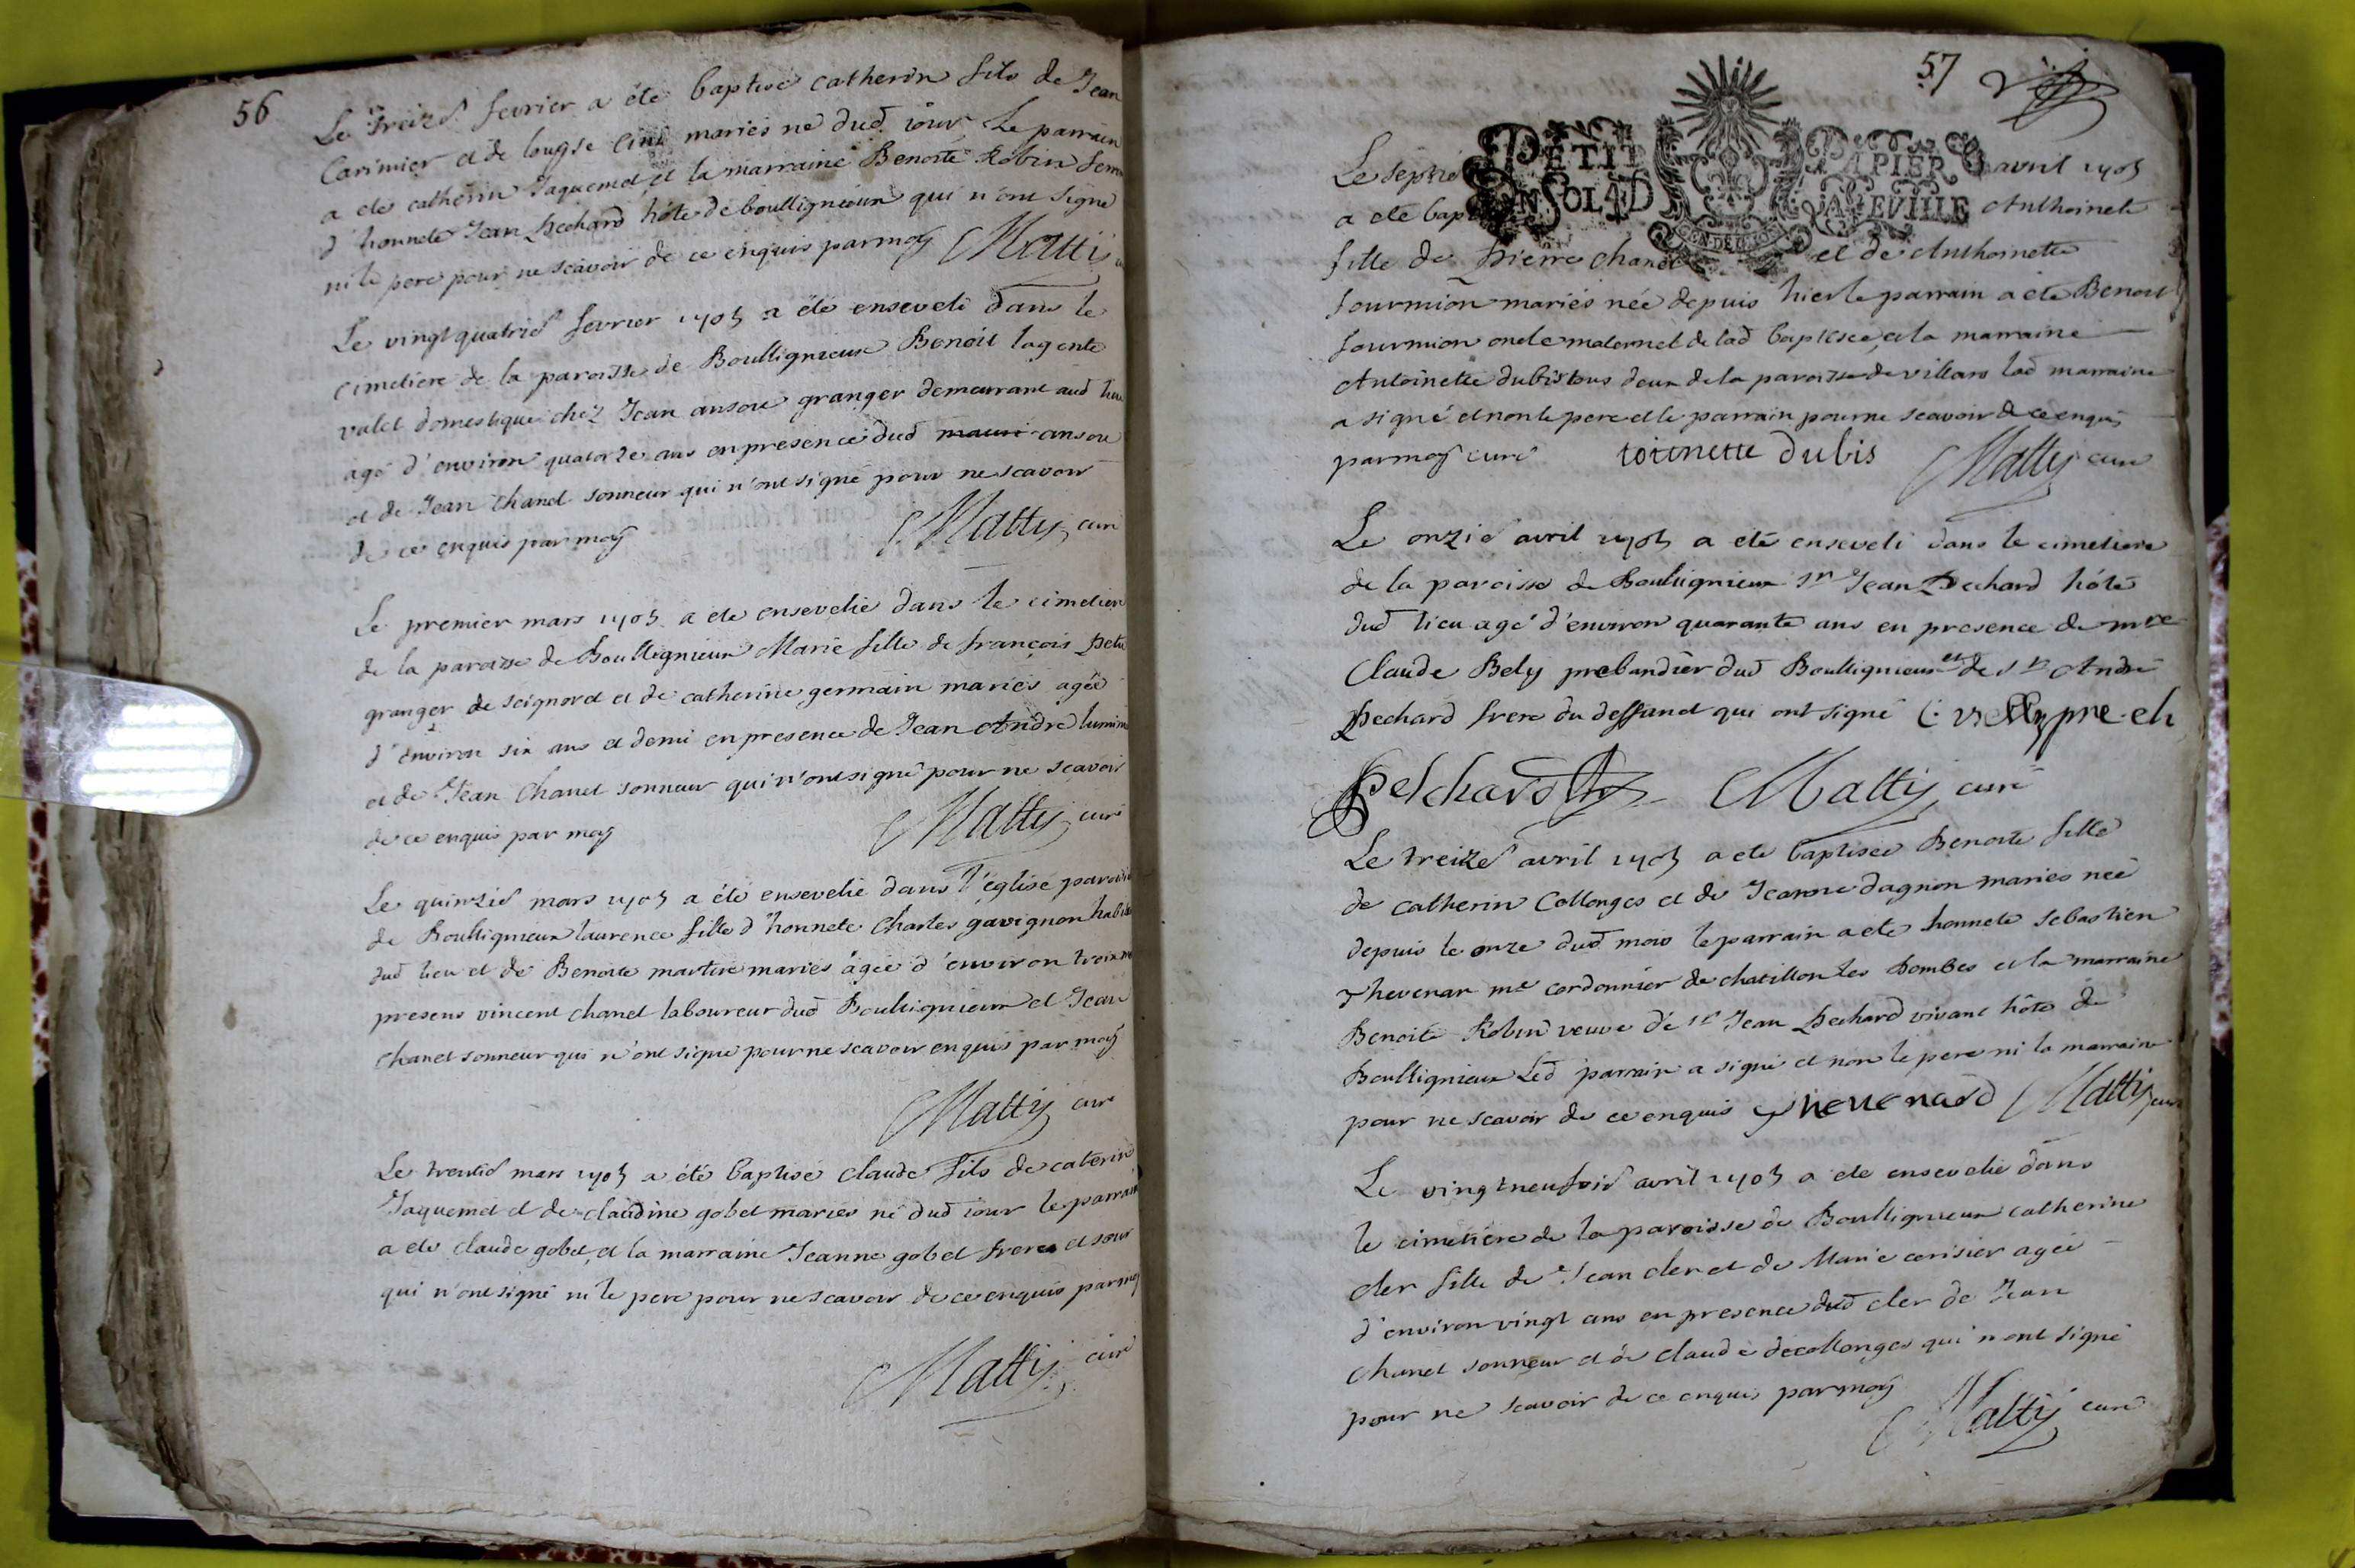 56
Le treizè fevrier a éte baptisé catherin fils de Jean
Carimier et de louyse Cint mariés né dud. iour, Le parrain
a ete catherin Jaquemet et la marraine Benoite Robin fem
d'honnete Jean Pechard hôte de boulligneux qui n'ont signé
ni le pere pour ne scavoir de ce enquis par moy Matti
Le vingt quatriè fevrier 1705 a été enseveli dans le
cimetiere de la paroisse de Boullignieux Benoit lagente
valet domestique chéz Jean ansou granger demeurant aud lieu
agé d'environ quatorze ans en presence dud ansou
et de Jean chanel sonneur qui n'ont signé pour ne scavoir
de ce enquis par moy Matty curé
Le premier mars 1705 a ete ensevelie dans le cimetier
de la paroisse de Boullignieux Marie fille de françois
granger de seignoret et de catherine germain mariés agée
d'environ six ans et demi en presence de Jean André
et de Jean Chanel sonneur qui n'ont signé pour ne scavoir
de ce enquis par moy Matty curé
Le quinziè mars 1705 a été ensevelie dans l'église paroissi
de Boullignieux laurence fille d'honnete Charles gavignon habit
dud lieu et de Benoite martin mariés agée d'environ trois
presens vincent chanel laboureur dud Boullignieux et Jean
chanel sonneur qui n'ont signé pour ne scavoir enquis par moy
Matty curé
Le trentiè mars 1705 a été baptisé claude fils de caterin
Jaquemet et de claudine gobet mariés né dud iour le parrain
a ete claude gobet, et la marraine Jeanne gobet freres et sour
qui n'ont signé ni le pere pour ne scavoir de ce enquis par moy
Matty curé
57
PETIT PAPIER
EN SOL 4 D LA FEVILLE
GEN DE DIION
Le septiè avril 1705
a ete bap Anthoinete
fille de Pierre chanel et de Anthoinette
fourmion mariés née depuis hier le parrain a été Benoit
fourmion oncle maternel de lad baptisée, et la marraine
Antoinette dubis tous deux de la paroisse de villars lad marraine
a signé et non le pere et le parrain pour ne scavoir de ce enquis
par moy curé toinette dubis Matty curé
Le onziè avril 1705 a eté enseveli dans le cimetiere
de la paroisse de Boullignieux Sr Jean Pechard hôte
dud lieu agé d'environ quarante ans en presence de mre
Claude Bely prebandier dud Boullignieux et de Sr André
Pechard frere du deffunct qui ont signé
Matty curé
Le treizè avril 1705 a ete baptisée Benoite fille
de catherin Collonges et de Jeanne dagnon mariés née
depuis le onze dud mois le parrain a ete honnete sebastien
Thevenar me cordonnier de chatillon les Dombes et la marraine
Benoite Robin veuve de sr Jean Pechard vivant hôte de
Boullignieux Led parrain a signé et non le pere ni la marraine
pour ne scavoir de ce enquis Thevenard Matty curé
Le vingt neufviè avril 1705 a ete ensevelie dans
le cimetiere de la paroisse de Boullignieux catherine
cler fille de Jean cler et de Marie cerisier agée
d'environ vingt ans en presence dud cler de Jean
chanel sonneur et de claude decollonges qui n'ont signé
pour ne scavoir de ce enquis par moy Matty curé